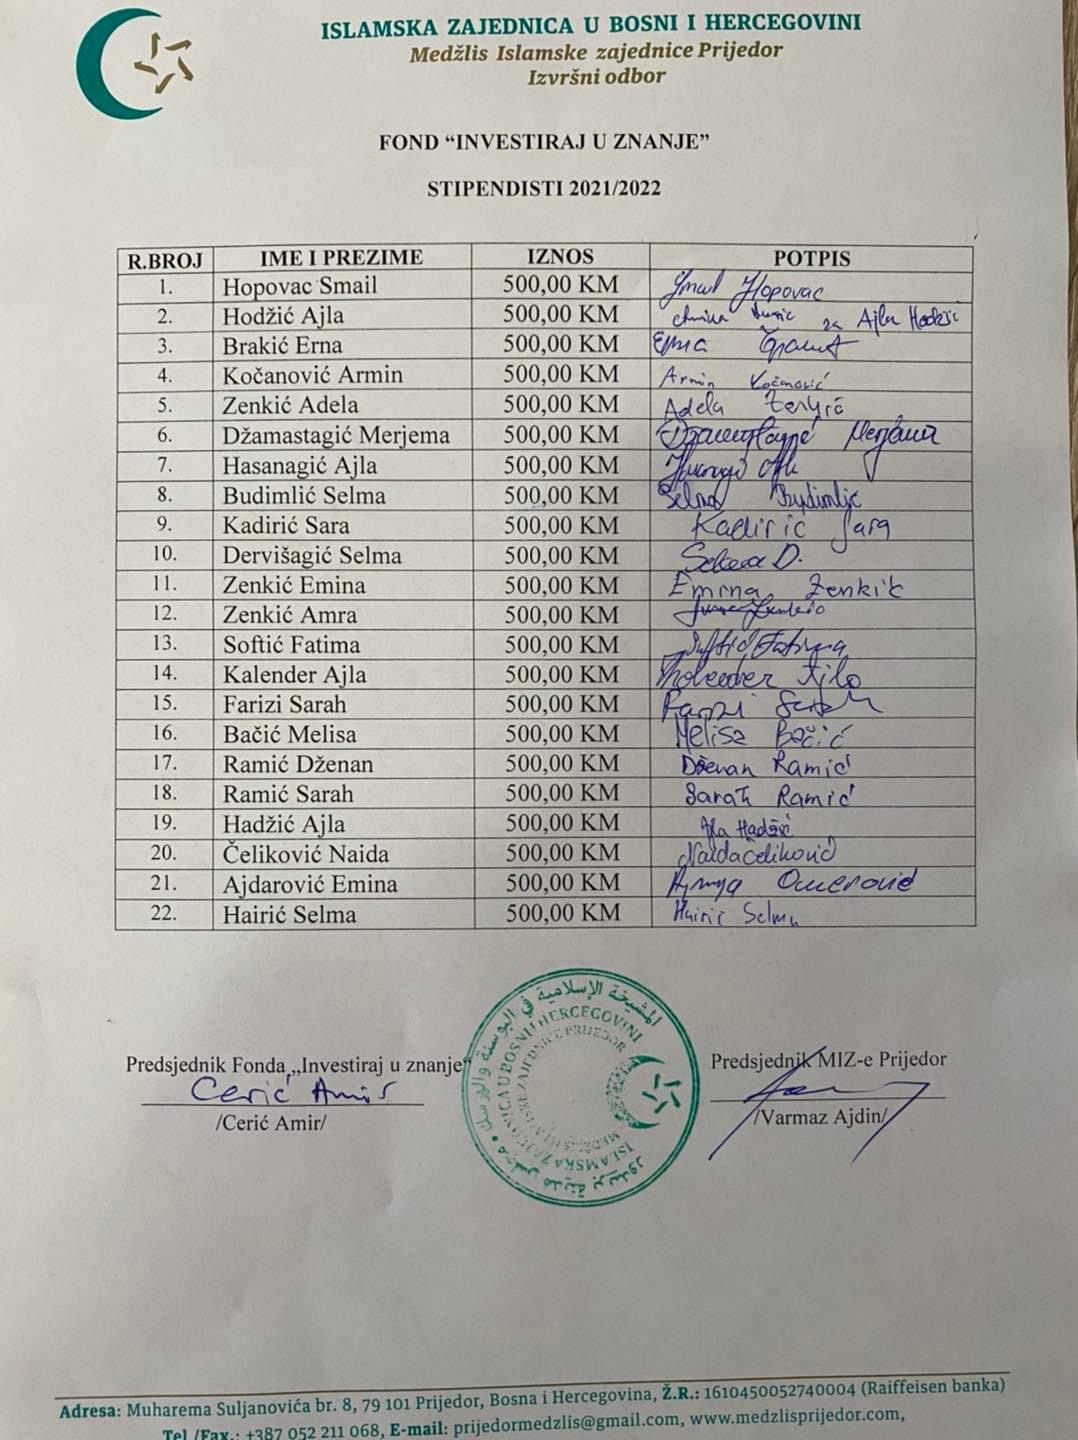 ISLAMSKA ZAJEDNICA U BOSNI I HERCEGOVINI
Medžlis Islamske zajednice Prijedor
Izvršni odbor
FOND “INVESTIRAJ U ZNANJE”
STIPENDISTI 2021/2022
R.BROJ IME I PREZIME IZNOS POTPIS
1. Hopovac Smail 500,00 KM Smail Hopovac
2. Hodžić Ajla 500,00 KM za Ajlu Hodžić
3. Brakić Erna 500,00 KM Erna
4. Kočanović Armin 500,00 KM Armin Kočanović
5. Zenkić Adela 500,00 KM Adela Zenkić
6. Džamastagić Merjema 500,00 KM
7. Hasanagić Ajla 500,00 KM
8. Budimlić Selma 500,00 KM Selma Budimlić
9. Kadirić Sara 500,00 KM Kadirić Sara
10. Dervišagić Selma 500,00 KM Selma D.
11. Zenkić Emina 500,00 KM Emina Zenkić
12. Zenkić Amra 500,00 KM
13. Softić Fatima 500,00 KM Softić Fatima
14. Kalender Ajla 500,00 KM Kalender Ajla
15. Farizi Sarah 500,00 KM Farizi Sarah
16. Bačić Melisa 500,00 KM Melisa Bačić
17. Ramić Dženan 500,00 KM Dženan Ramić
18. Ramić Sarah 500,00 KM Sarah Ramić
19. Hadžić Ajla 500,00 KM Ajla Hadžić
20. Čeliković Naida 500,00 KM Naida Čeliković
21. Ajdarović Emina 500,00 KM Omerović
22. Hairić Selma 500,00 KM Hairić Selma
المشيخة الإسلامية في البوسنة والهرسك • مجلس مدينة بريدور
ISLAMSKA ZAJEDNICA U BOSNI I HERCEGOVINI
MEDŽLIS ISLAMSKE ZAJEDNICE PRIJEDOR
Predsjednik Fonda „Investiraj u znanje“
Cerić Amir
/Cerić Amir/
Predsjednik MIZ-e Prijedor
/Varmaz Ajdin/
Adresa: Muharema Suljanovića br. 8, 79 101 Prijedor, Bosna i Hercegovina, Ž.R.: 1610450052740004 (Raiffeisen banka)
Tel./Fax.: +387 052 211 068, E-mail: prijedormedzlis@gmail.com, www.medzlisprijedor.com,